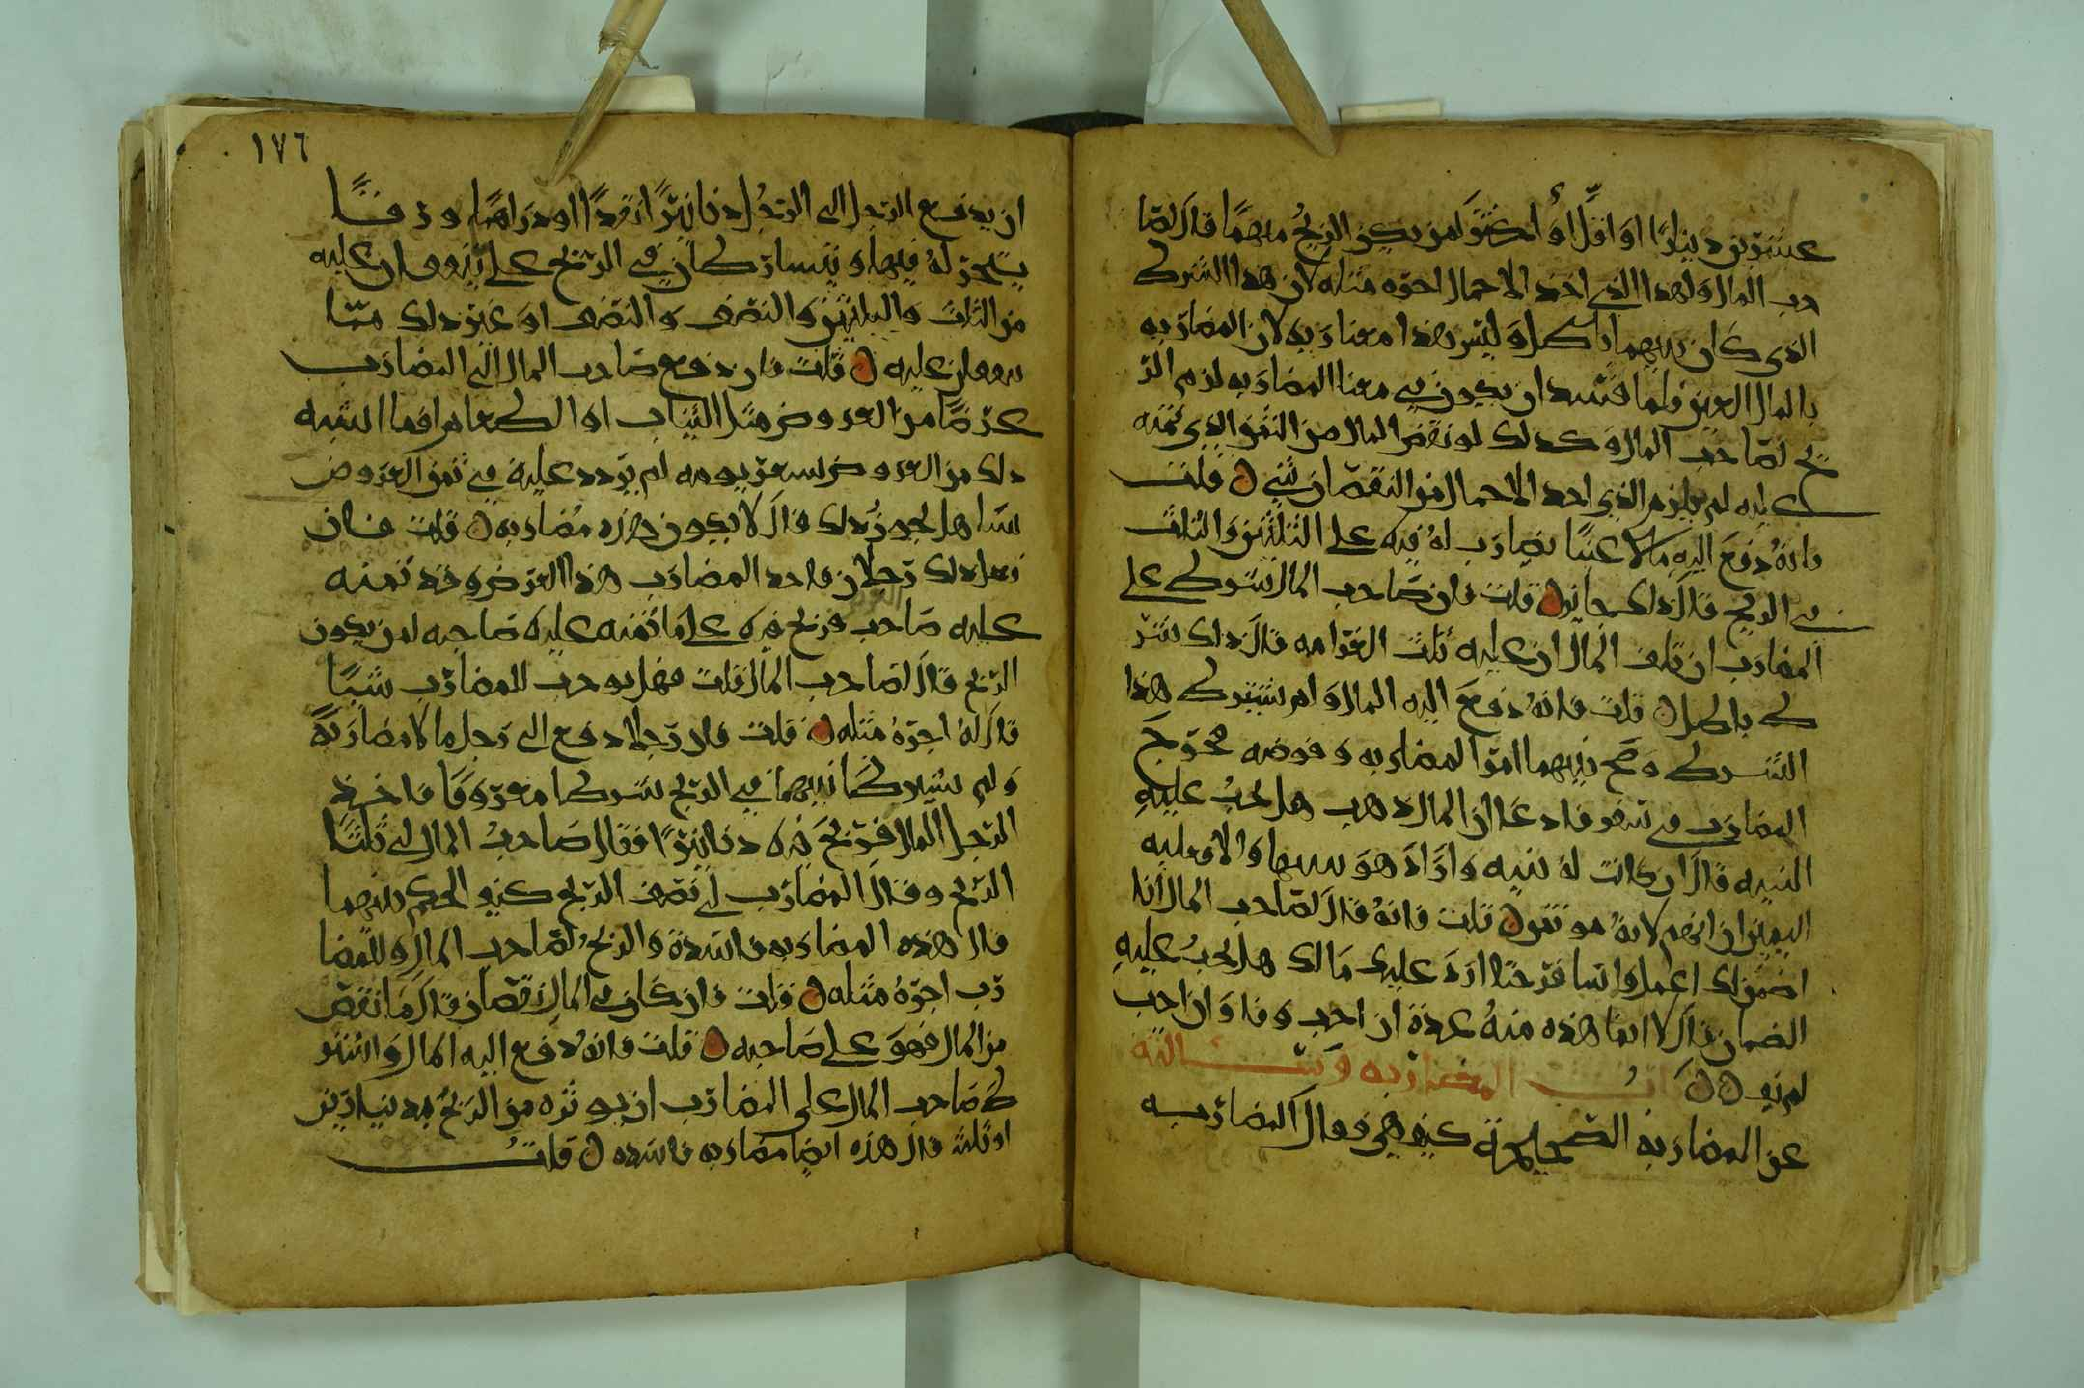 عشرين دينارا او اقل او اكثر لمن يكون الربح منهما قال لصا
حب المال ولهذا الذي اخذ الاحمال اجرة مثله لان هذا الشرط
الذي كان بينهما باطل وليس هذا معنا مضاربه لان المضاربه
بالمال العين فلما فسد ان يكون في معنا المضاربه لزم الر
بح لصاحب المال وكذلك لو نقص المال من الثمن الذي ثمنه
عليه لم يلزم الذي اخذ الاحمال من النقصان شي ن قلت
فانه دفع اليه مالا عينا يضارب له فيه على الثلثين والثلث
في الربح قال ذلك جايز ن قلت فان صاحب المال شرط على
المضارب ان تلف المال ان عليه ثلث الغرامه قال ذلك شر
ط باطل ن قلت فانه دفع اليه المال ولم يشترط هذا
الشرط وصح بينهما امر المضاربه وفوضه فخرج
المضارب في سفر فادعا ان المال ذهب هل يجب عليه
البينه قال ان كانت له بينه واراد هو والا فعليه
اليمين ان اتهم لانه موتمن ن قلت فانه قال لصاحب المال انا
اضمن لك اعمل وانا حتى ارد عليك مالك هل يجب عليه
الضمان قال لا انما هذه منه عدة ان احب وفا وان احب
لم يف ن ن المضاربه وسالته
عن المضاربه الصحيحة كيف هي فقال المضاربه
١٧٦
ان يدفع الرجل الى الرجل دنانيرا نقدا او دراهما ورقا
يتجر له فيها وبيتشارطان في الربح على ما يتفقان عليه
من الثلث والثلثين والنصف والنصف او غير ذلك مما
يتفقان عليه ن قلت فان دفع صاحب المال الى المضارب
عرضا من العروض مثل الثياب او الطعام او ما اشبه
ذلك من العروض بسعر يومه لم يزدد عليه في ثمن العروض
شيا هل يجوز ذلك قال لا يكون هذه مضاربه ن قلت فان
فعل ذلك رجلان فاخذ المضارب هذا العرض وقد ثمنه
عليه صاحب فربح فيه على ما ثمنه عليه صاحبه لمن يكون
الربح قال لصاحب المال قلت فهل يوجب للمضارب شيا
قال له اجرة مثله ن قلت فان رجلا دفع الى رجل مالا مضاربة
ولم يشترطا بينهما في الربح شرطا معروفا فاخذ
الرجل المال فربح فيه دنانيرا فقال صاحب المال لي ثلثا
الربح وقال المضارب لي نصف الربح كيف الحكم بينهما
قال هذه المضاربه فاسدة والربح لصاحب المال وللمضا
رب اجرة مثله ن قلت فان كان في المال نقصان قال ما نقص
من المال فهو على صاحبه ن قلت فانه دفع اليه المال واشتر
ط صاحب المال على المضارب ان يوثره من الربح بدينارين
او ثلثه قال هذه ايضا مضاربه فاسده ن قلت